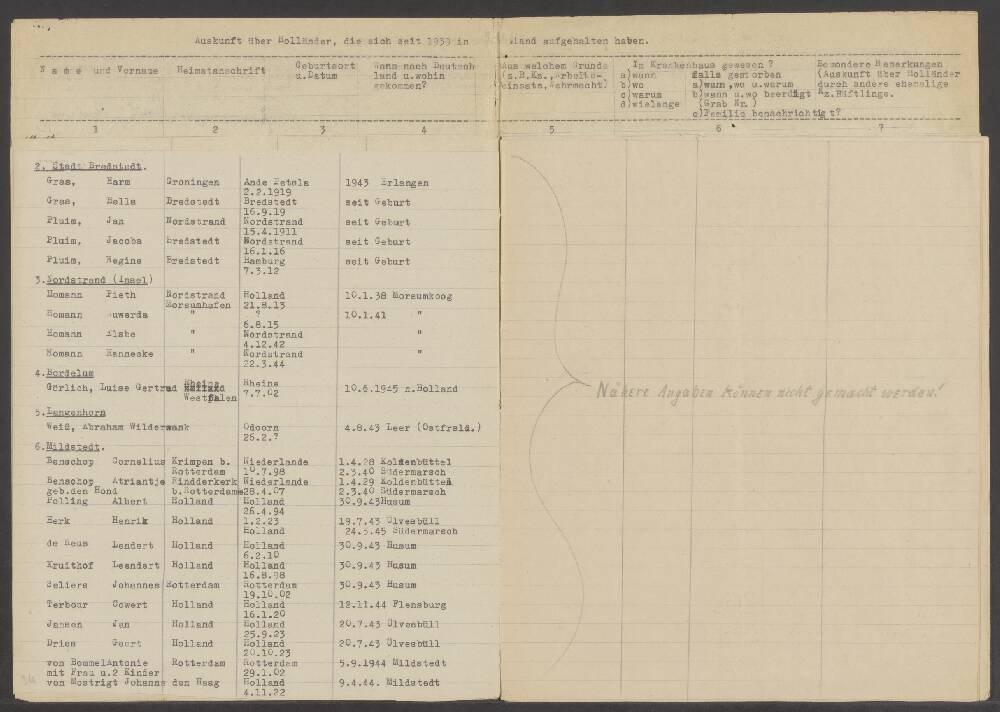 Auskunft über Holländer, die sich seit 1939 in land aufgehalten haben.
Name und Vorname Heimatanschrift Geburtsort u.Datum Wann nach Deutsch land u.wohin gekommen? Aus welchem Grunde (z.B.Kn.,Arbeits-einsatz,Wehrmacht) In Krankenhaus gewesen ? a)wann b)wo c)warum d)wielange falls gestorben a)wann,wo u.warum b)wann u.wo beerdigt (Grab Nr.) c)Familie benachrichtigt? Besondere Bemerkungen (Auskunft über Holländer durch andere ehemalige Kz.Häftlinge.
1 2 3 4 5 6 7
2. Stadt Bredstedt.
Gras, Harm Groningen Ande Petels 1943 Erlangen
2.2.1919
Gras, Hella Bredstedt Bredstedt seit Geburt
16.9.19
Pluim, Jan Nordstrand Nordstrand seit Geburt
15.4.1911
Pluim, Jacoba Bredstedt Nordstrand seit Geburt
16.1.16
Pluim, Regine Bredstedt Hamburg seit Geburt
7.3.12
3.Nordstrand (Insel)
Homann Pieth Nordstrand Holland 10.1.38 Morsumkoog
Morsumhafen 21.8.13
Homann uwarda " ? 10.1.41 "
6.8.15
Homann Elsbe " Nordstrand "
4.12.42
Homann Hannecke " Nordstrand "
22.3.44
4.Bordelum
Görlich, Luise Gertrud Rheine Rheine 10.6.1945 n.Holland
Westfalen 7.7.02
5.Langenhorn
Weiß, Abraham Wilderwank Odoorn 4.8.43 Leer (Ostfrsld.)
26.2.?
6.Mildstedt.
Benschop Cornelius Krimpen b. Niederlande 1.4.28 Koldenbüttel
Rotterdam 10.7.98 2.3.40 Südermarsch
Benschop Atriantje Rindderkerk Niederlande 1.4.29 Koldenbüttel
geb.den Hond b.Rotterdam 28.4.07 2.3.40 Südermarsch
Polling Albert Holland Holland 30.9.43 Husum
26.4.94
Herk Henrik Holland 1.2.23 19.7.43 Ülvesbüll
Holland 24.5.45 Südermarsch
de Reus Lendert Holland Holland 30.9.43 Husum
6.2.10
Kruithof Leendert Holland Holland 30.9.43 Husum
16.8.98
Seliers Johannes Rotterdam Rotterdam 30.9.43 Husum
19.10.02
Terbour Gowert Holland Holland 12.11.44 Flensburg
16.1.20
Jansen Jan Holland Holland 20.7.43 Ülvesbüll
25.9.23
Dries Geert Holland Holland 20.7.43 Ülvesbüll
20.10.23
von Bommel Antonie Rotterdam Rotterdam 5.9.1944 Mildstedt
mit Frau u.2 Kinder 29.1.02
von Mostrigt Johanns den Haag Holland 9.4.44. Mildstedt
4.11.22
Nähere Angaben können nicht gemacht werden!